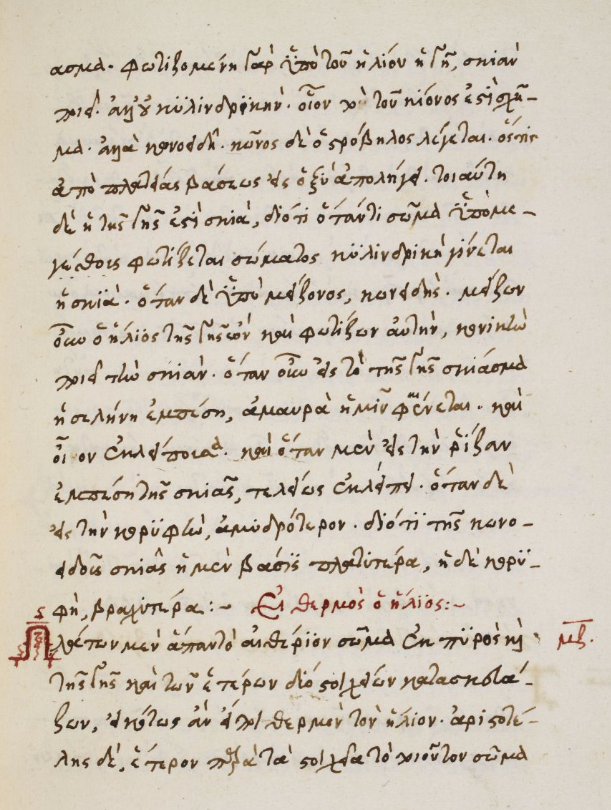 ασμα· φωτιζομένη γὰρ ὑπὸ τοῦ ἡλίου ἡ γῆ, σκιὰν
ποιεῖ· ἀλλ' οὐ κυλινδρικήν· οἷον τὸ τοῦ κίονος ἐστὶ σχῆ-
μα· ἀλλὰ κονοειδῆ· κῶνος δὲ ὁ στρόβηλος λέγεται· ὅστις
ἀπὸ πλατείας βάσεως εἰς ὀξὺ ἀπολήγει· τοιαύτη
δὲ ἡ τῆς γῆς ἐστὶ σκιὰ, διότι ὅταν τι σῶμα ὑπὸ με-
γέθους φωτίζεται σώματος κυλινδρικὴ γίνεται
ἡ σκϊὰ· ὅταν δὲ ὑπὸ μείζονος, κωνειδής· μείζων
οὖν ὁ ἥλιος τῆς γῆς ὢν καὶ φωτίζων αὐτὴν, κονικὴν
ποιεῖ τὴν σκιὰν· ὅταν οὖν εἰς τὸ τῆς γῆς σκιάσμα
ἡ σελήνη ἐμπέση, ἀμαυρὰ ἡμῖν φαίνεται· καὶ
οἷον ἐκλείπουσα· καὶ ὅταν μὲν εἰς τὴν ῥίζαν
ἐμπέση τῆς σκιᾶς, τελείως ἐκλείπει· ὅταν δὲ
εἰς τὴν κορυφὴν, ἀμυδρότερον· διότι τῆς κωνο-
ειδοῦς σκιᾶς ἡ μὲν βάσις πλατυτέρα, ἡ δὲ κορυ-
φὴ, βραχυτέρα:- Εἰ θερμὸς ὁ ἥλιος:-
Πλάτων μὲν ἅπαν τὸ αἰθέριον σῶμα ἐκ πυρὸς καὶ μβ.
τῆς γῆς καὶ τῶν ἑτέρων δύο στοιχείων κατασκευά-
ζων, εἰκότως ἂν εἴποι θερμὸν τὸν ἥλιον· ἀριστοτέ-
λης δὲ, ἕτερον παρὰ τὰ στοιχεῖα τὸ ποιοῦν τὸν σῶμα